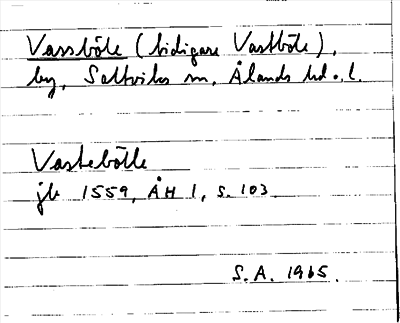 Vassböle (tidigare Vastböle),
by, Saltviks sn, Ålands hd o. l.
Vastebölle
jb 1559, ÅH 1, s. 103.
S.A. 1965.